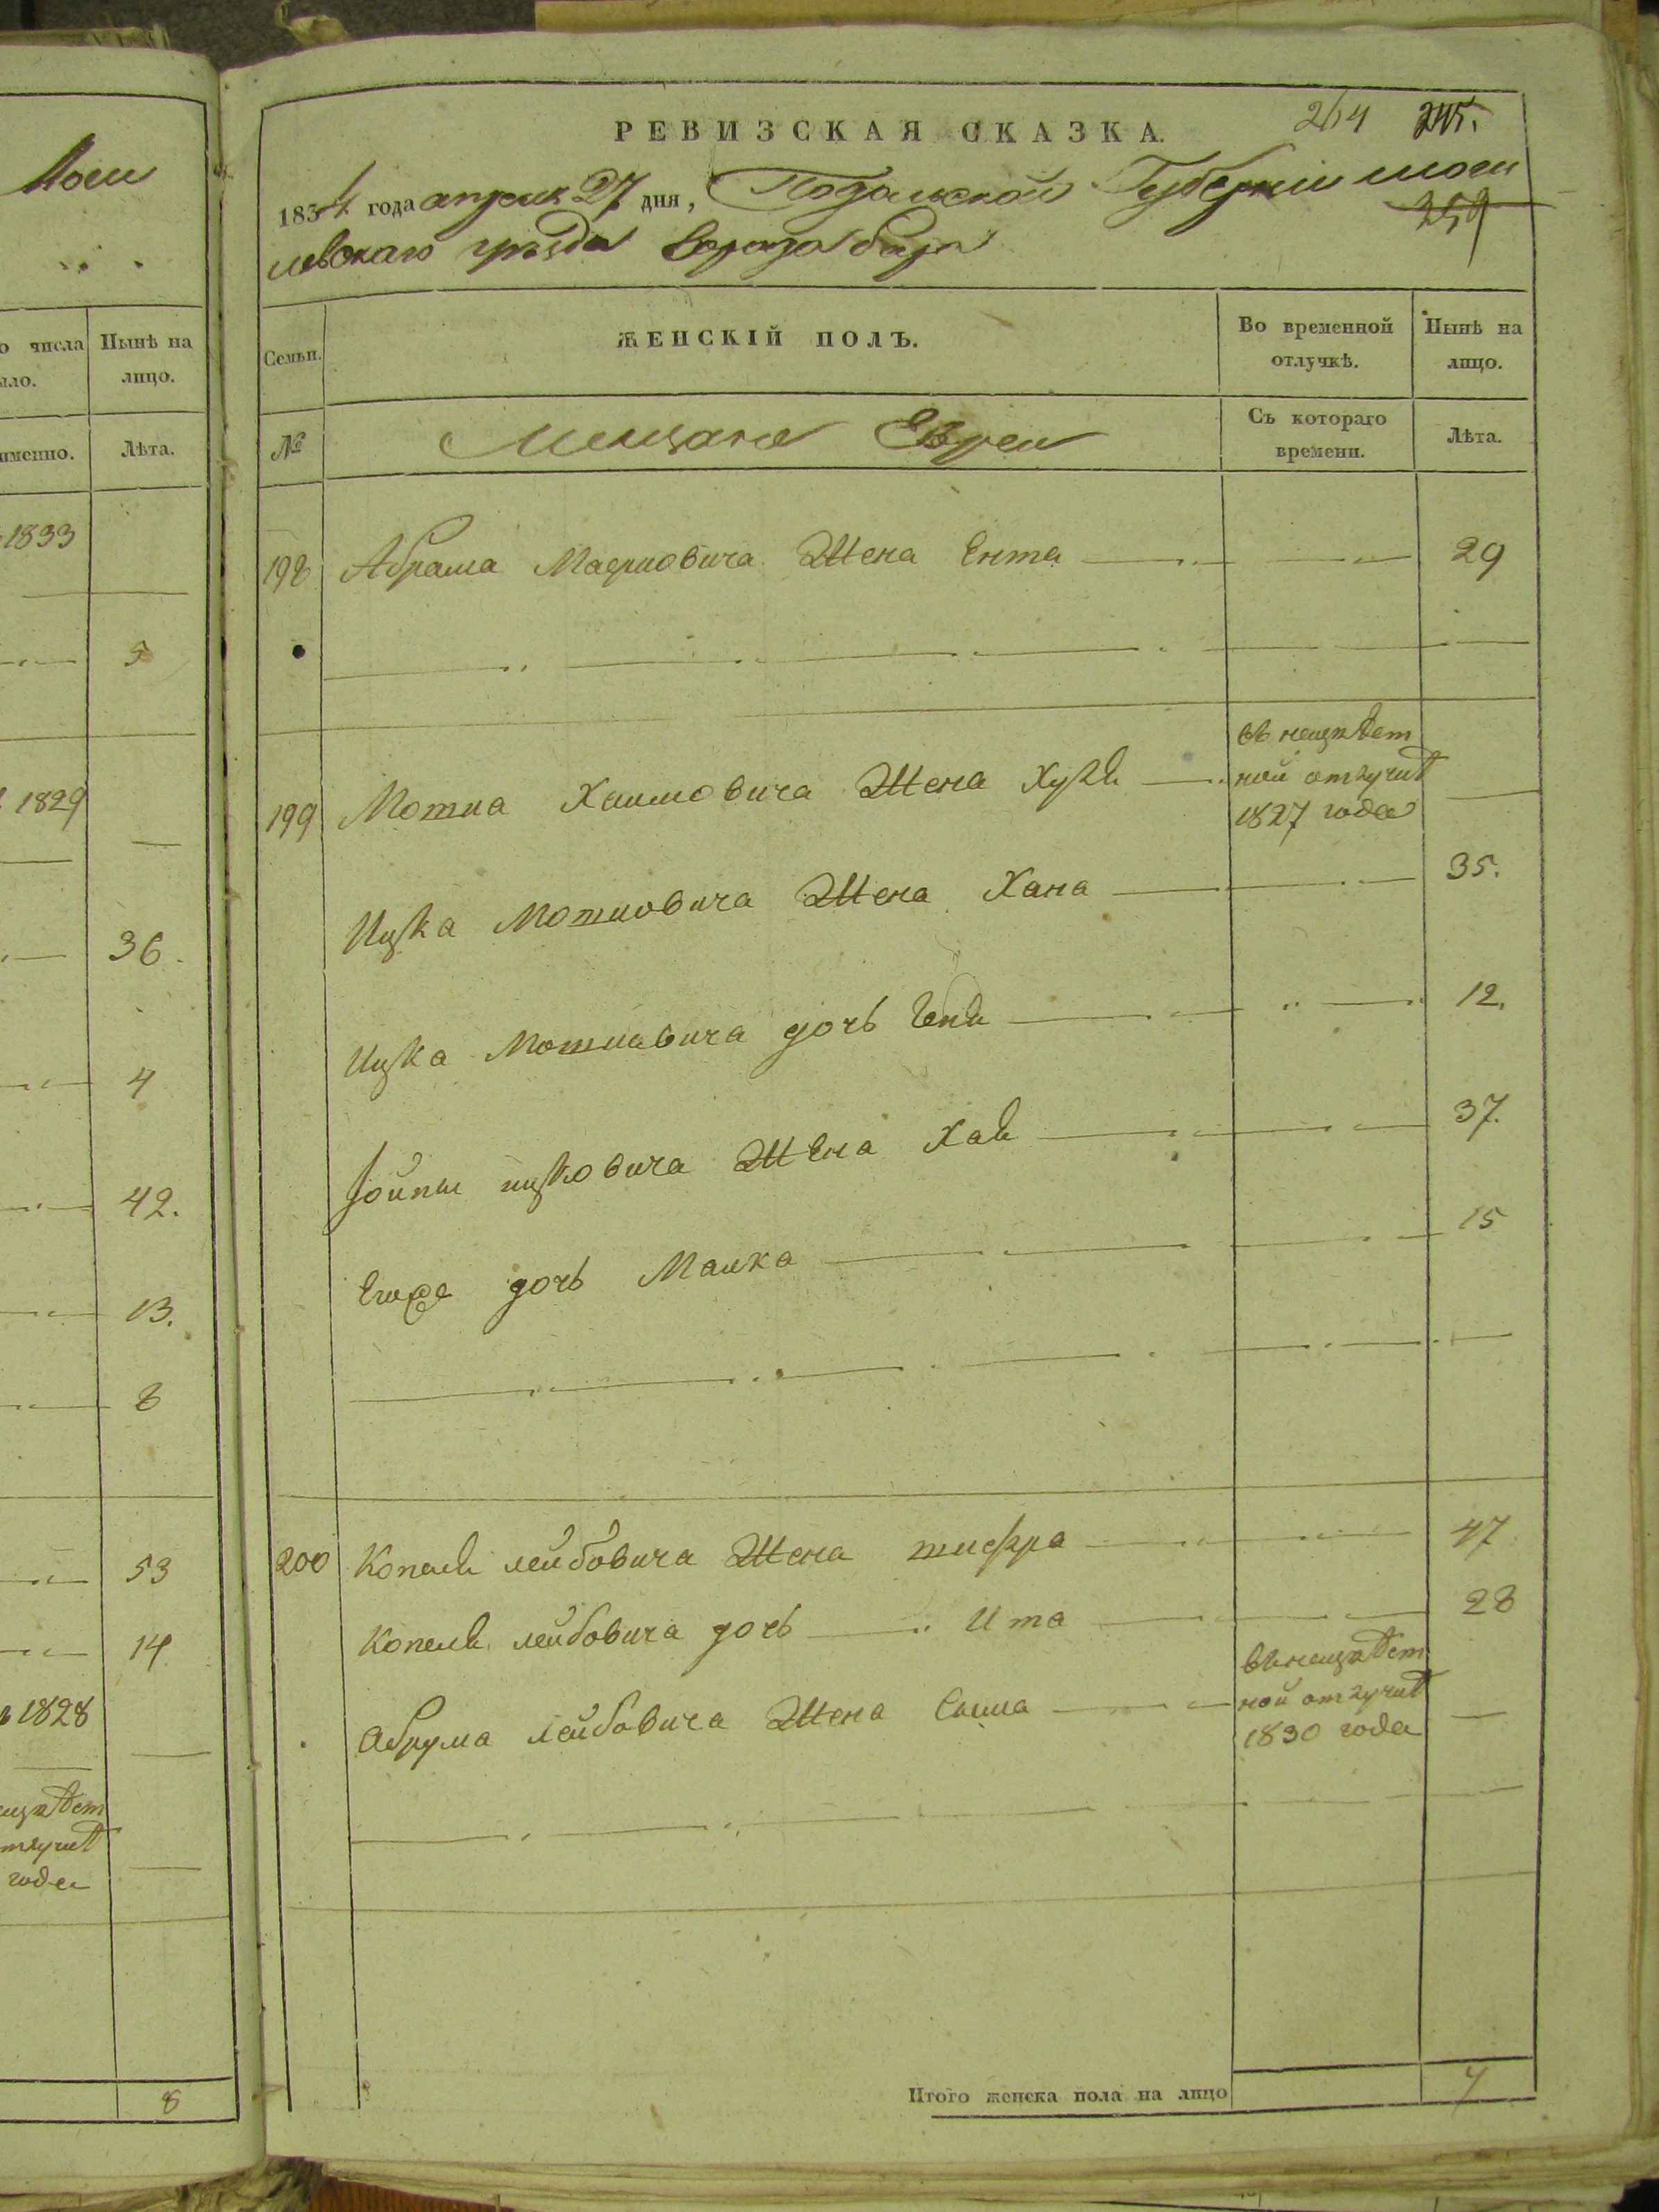 Моги
о числа
ыло.
Нынѣ на
лицо.
именно.
Лѣта.
1833
5
1829
36.
4
42.
13.
8
53
14
1828
года
8
РЕВИЗСКАЯ СКАЗКА.
264 245.
1834 года апреля 27 дня, Подольской Губерніи Моги
259
левскаго уѣзда города бара
Семьи.
ЖЕНСКІЙ ПОЛЪ.
Во временной
отлучкѣ.
Нынѣ на
лицо.
№
Мещане Евреи
Съ котораго
времени.
Лѣта.
198 Абрама Маериовича Жена Ента 29
199 Мотиа Хаимовича Жена
ной отлучкѣ
1827 года
Ицка Мотиовича Жена Хана 35.
Ицка Мотиовича дочь 12.
ицковича Жена 37.
Егоже дочь Малка 15
200 Копеля лейбовича Жена 47
Копеля лейбовича дочь Ита 28
Абрума лейбовича Жена
ной отлучкѣ
1830 года
Итого женска пола на лицо 7